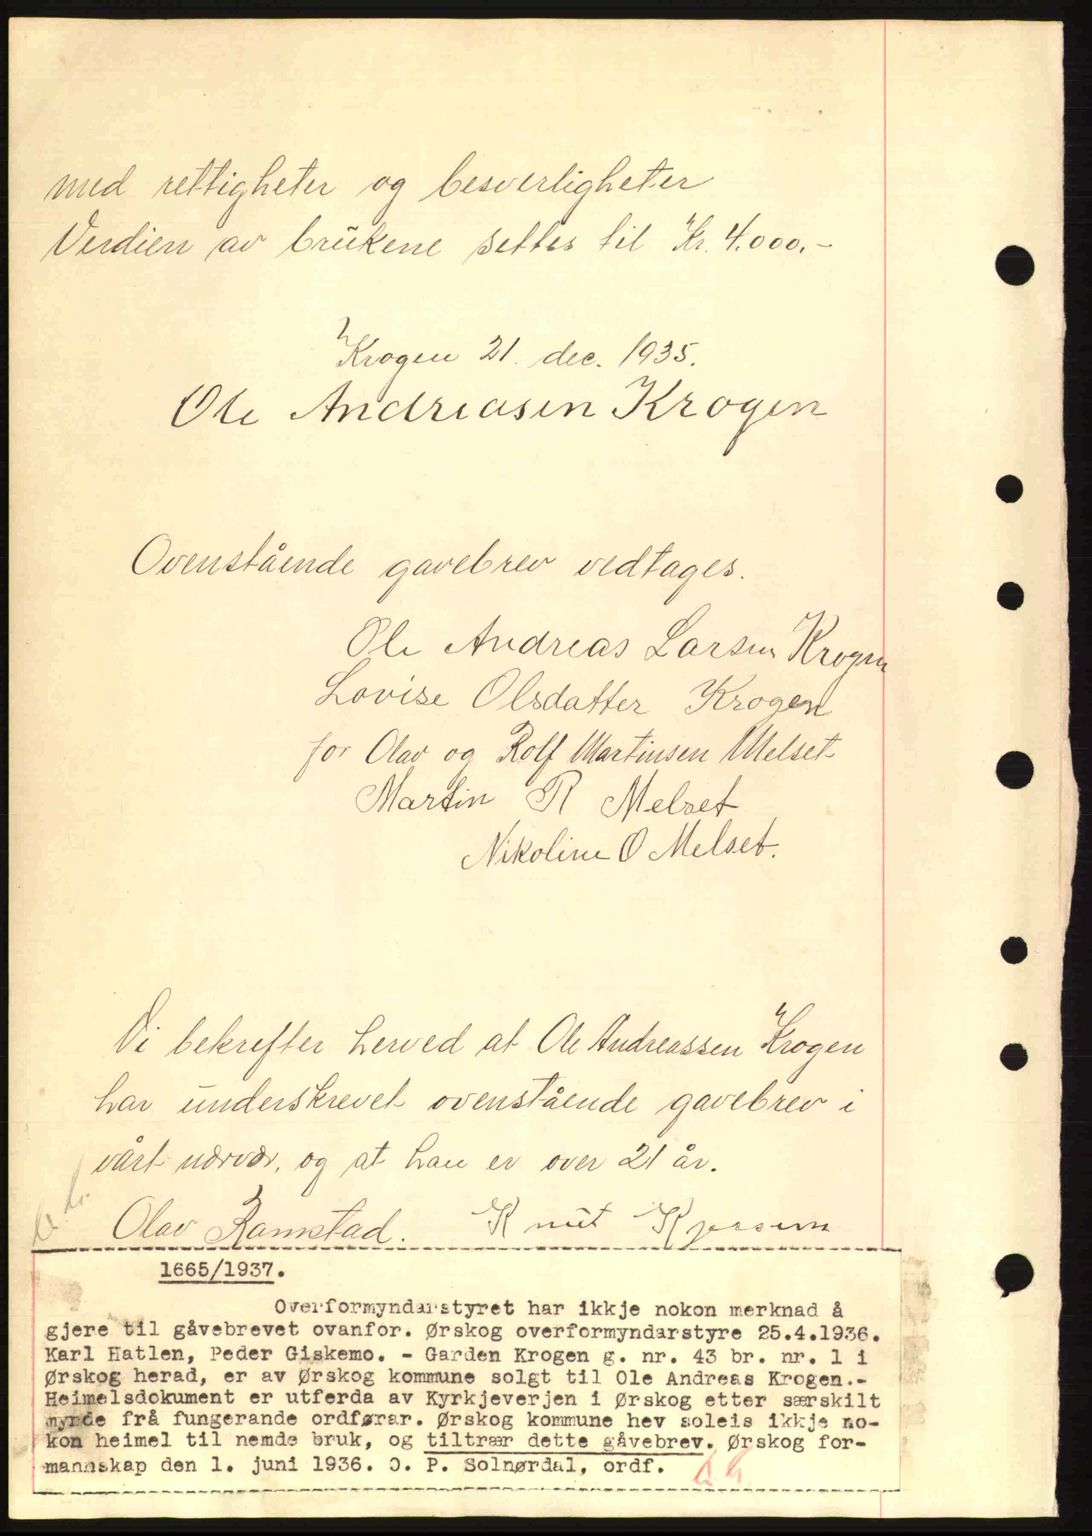 med rettigheter og besverligheter
Verdien av brukene settes til Kr. 4.000.–
Krogen 21. dec. 1935.
Ole Andreasen Krogen
Ovenstående gavebrev vedtages.
Ole Andreas Larsen Krogen
Lovise Olsdatter Krogen
for Olav og Rolf Martinsen Melset
Martin R Melset
Nikoline O Melset.
Vi bekrefter herved at Ole Andreassen Krogen
har underskrevet ovenstående gavebrev i
vårt nærvær, og at han er over 21 år.
Olav Ramstad. Knut
1665/1937.
Overformyndarstyret har ikkje nokon merknad å
gjere til gåvebrevet ovanfor. Ørskog overformyndarstyre 25.4.1936.
Karl Hatlen, Peder Giskemo. - Garden Krogen g. nr. 43 br. nr. 1 i
Ørskog herad, er av Ørskog kommune solgt til Ole Andreas Krogen.-
Heimelsdokument er utferda av Kyrkjeverjen i Ørskog etter særskilt
mynde frå fungerande ordførar. Ørskog kommune hev soleis ikkje no-
kon heimel til nemde bruk, og tiltrær dette gåvebrev. Ørskog for-
mannskap den 1. juni 1936. O. P. Solnørdal, ordf.